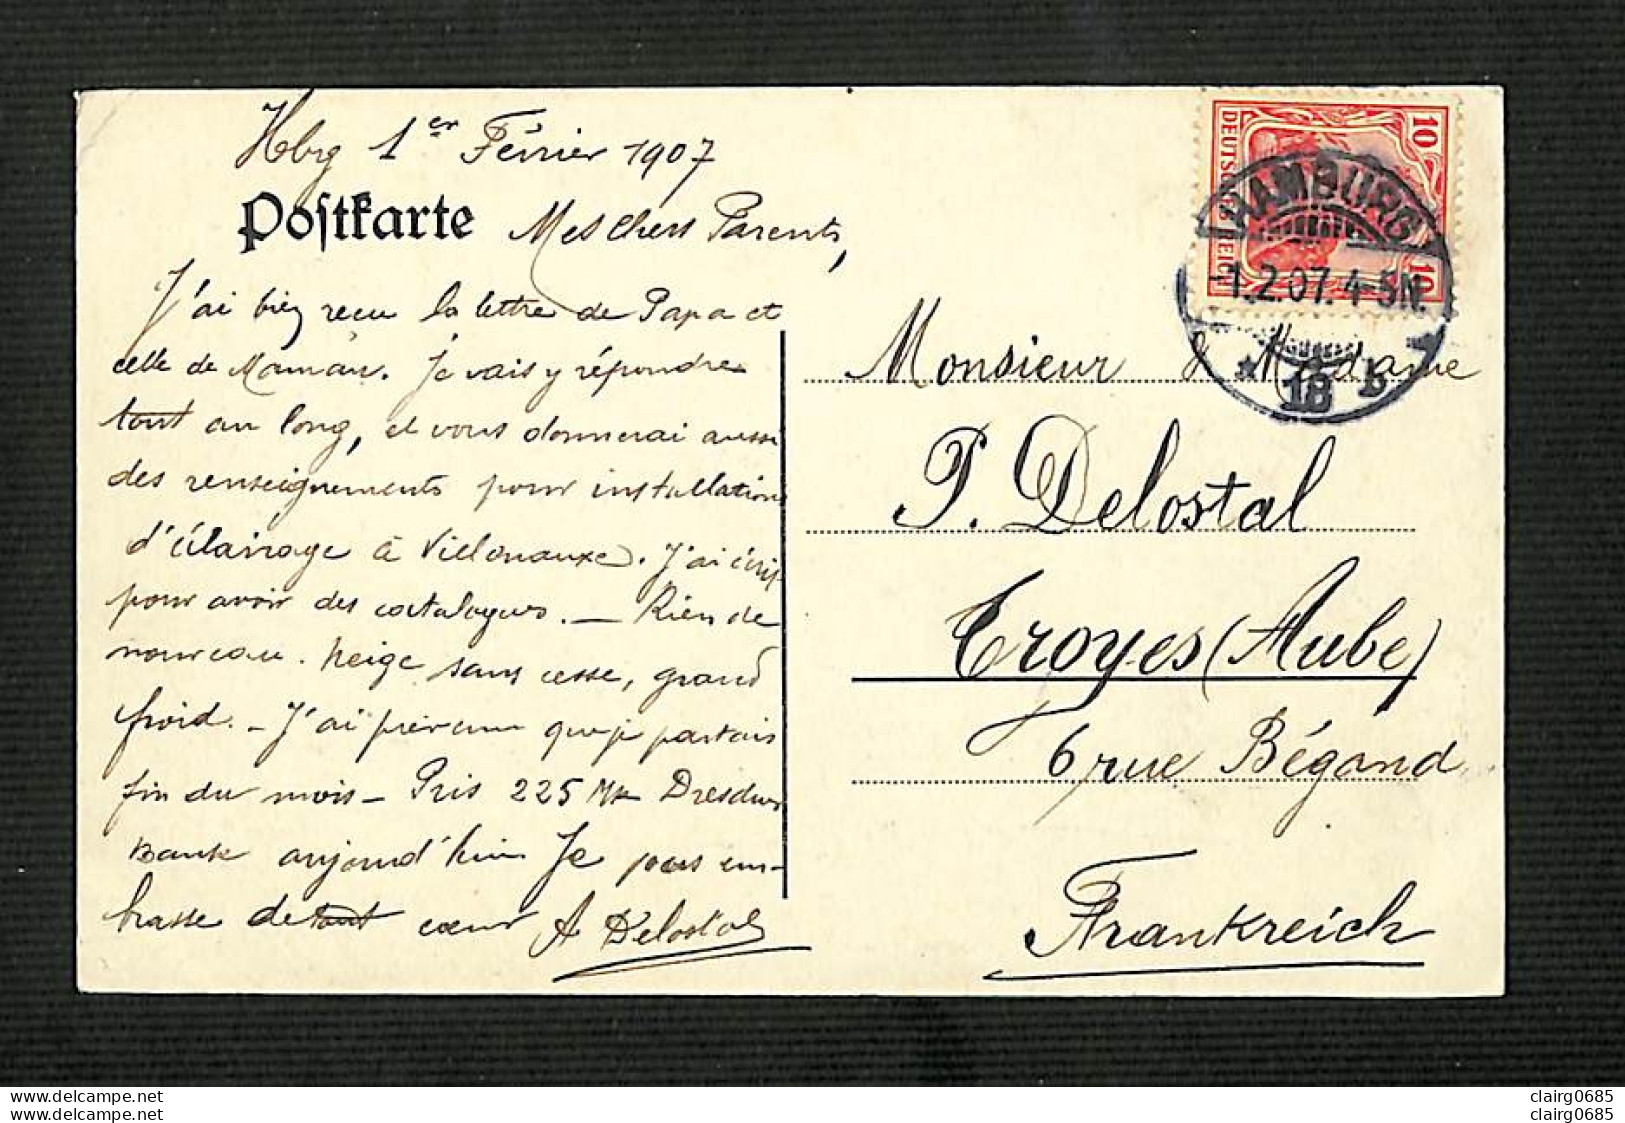 Hbrg 1er Février 1907
Postkarte Mes Chers Parents,
J'ai bien reçu la lettre de Papa et
celle de Maman. Je vais y répondre
tout au long, et vous donnerai aussi
des renseignements pour installation
d'éclairage à Villenauxe. J'ai écrit
pour avoir des catalogues. — Rien de
nouveau. Neige sans cesse, grand
froid. - J'ai prévenu que je partais
fin du mois - Pris 225 Mk Dresdner
Bank aujourd'hui Je vous em-
brasse de tout cœur A Delostal
10 DEUTSCHES REICH 10
HAMBURG
-1.2.07.4-5N
* 18 b
Monsieur & Madame
P. Delostal
Troyes (Aube)
6 rue Bégand
Frankreich
www.delcampe.net
www.delcampe.net
clairg0685
clairg0685